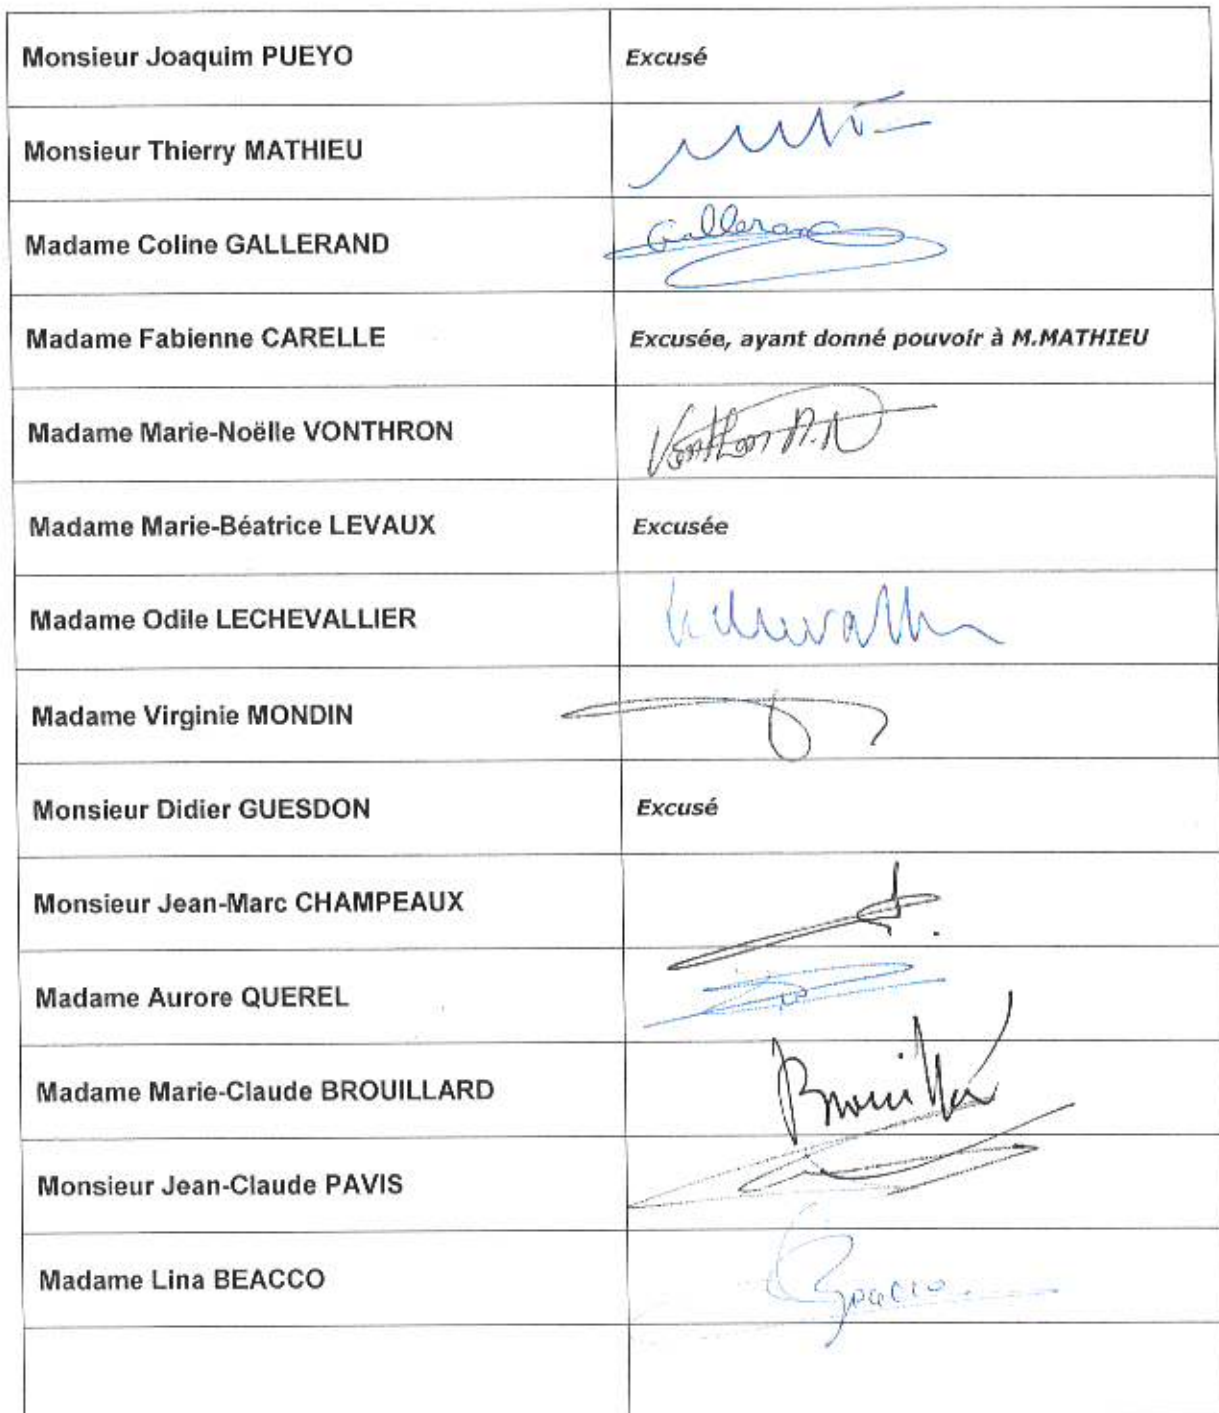 Monsieur Joaquim PUEYO Excusé
Monsieur Thierry MATHIEU
Madame Coline GALLERAND Gallerand
Madame Fabienne CARELLE Excusée, ayant donné pouvoir à M.MATHIEU
Madame Marie-Noëlle VONTHRON Vonthron M.N
Madame Marie-Béatrice LEVAUX Excusée
Madame Odile LECHEVALLIER
Madame Virginie MONDIN
Monsieur Didier GUESDON Excusé
Monsieur Jean-Marc CHAMPEAUX
Madame Aurore QUEREL
Madame Marie-Claude BROUILLARD
Monsieur Jean-Claude PAVIS
Madame Lina BEACCO Beacco